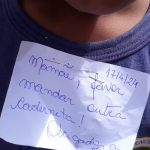 17/4/24
Mamãe! Favor
mandar outra
caderneta!
Obrigada